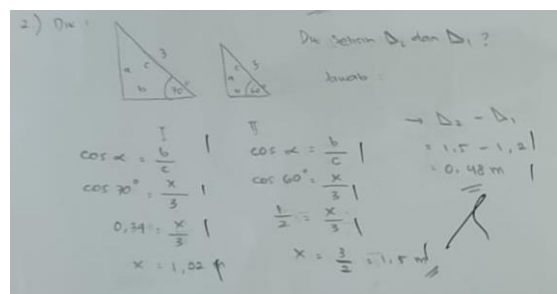 2.) Dik :
a c 3
b 70°
a c 3
b 60°
Dit Selisih Δ₂ dan Δ₁ ?
Jawab :
I
cos α = b/c
cos 70° = x/3
0,34 = x/3
x = 1,02 m
II
cos α = b/c
cos 60° = x/3
1/2 = x/3
x = 3/2 = 1.5 m
→ Δ₂ - Δ₁
= 1,5 - 1,2
= 0,48 m